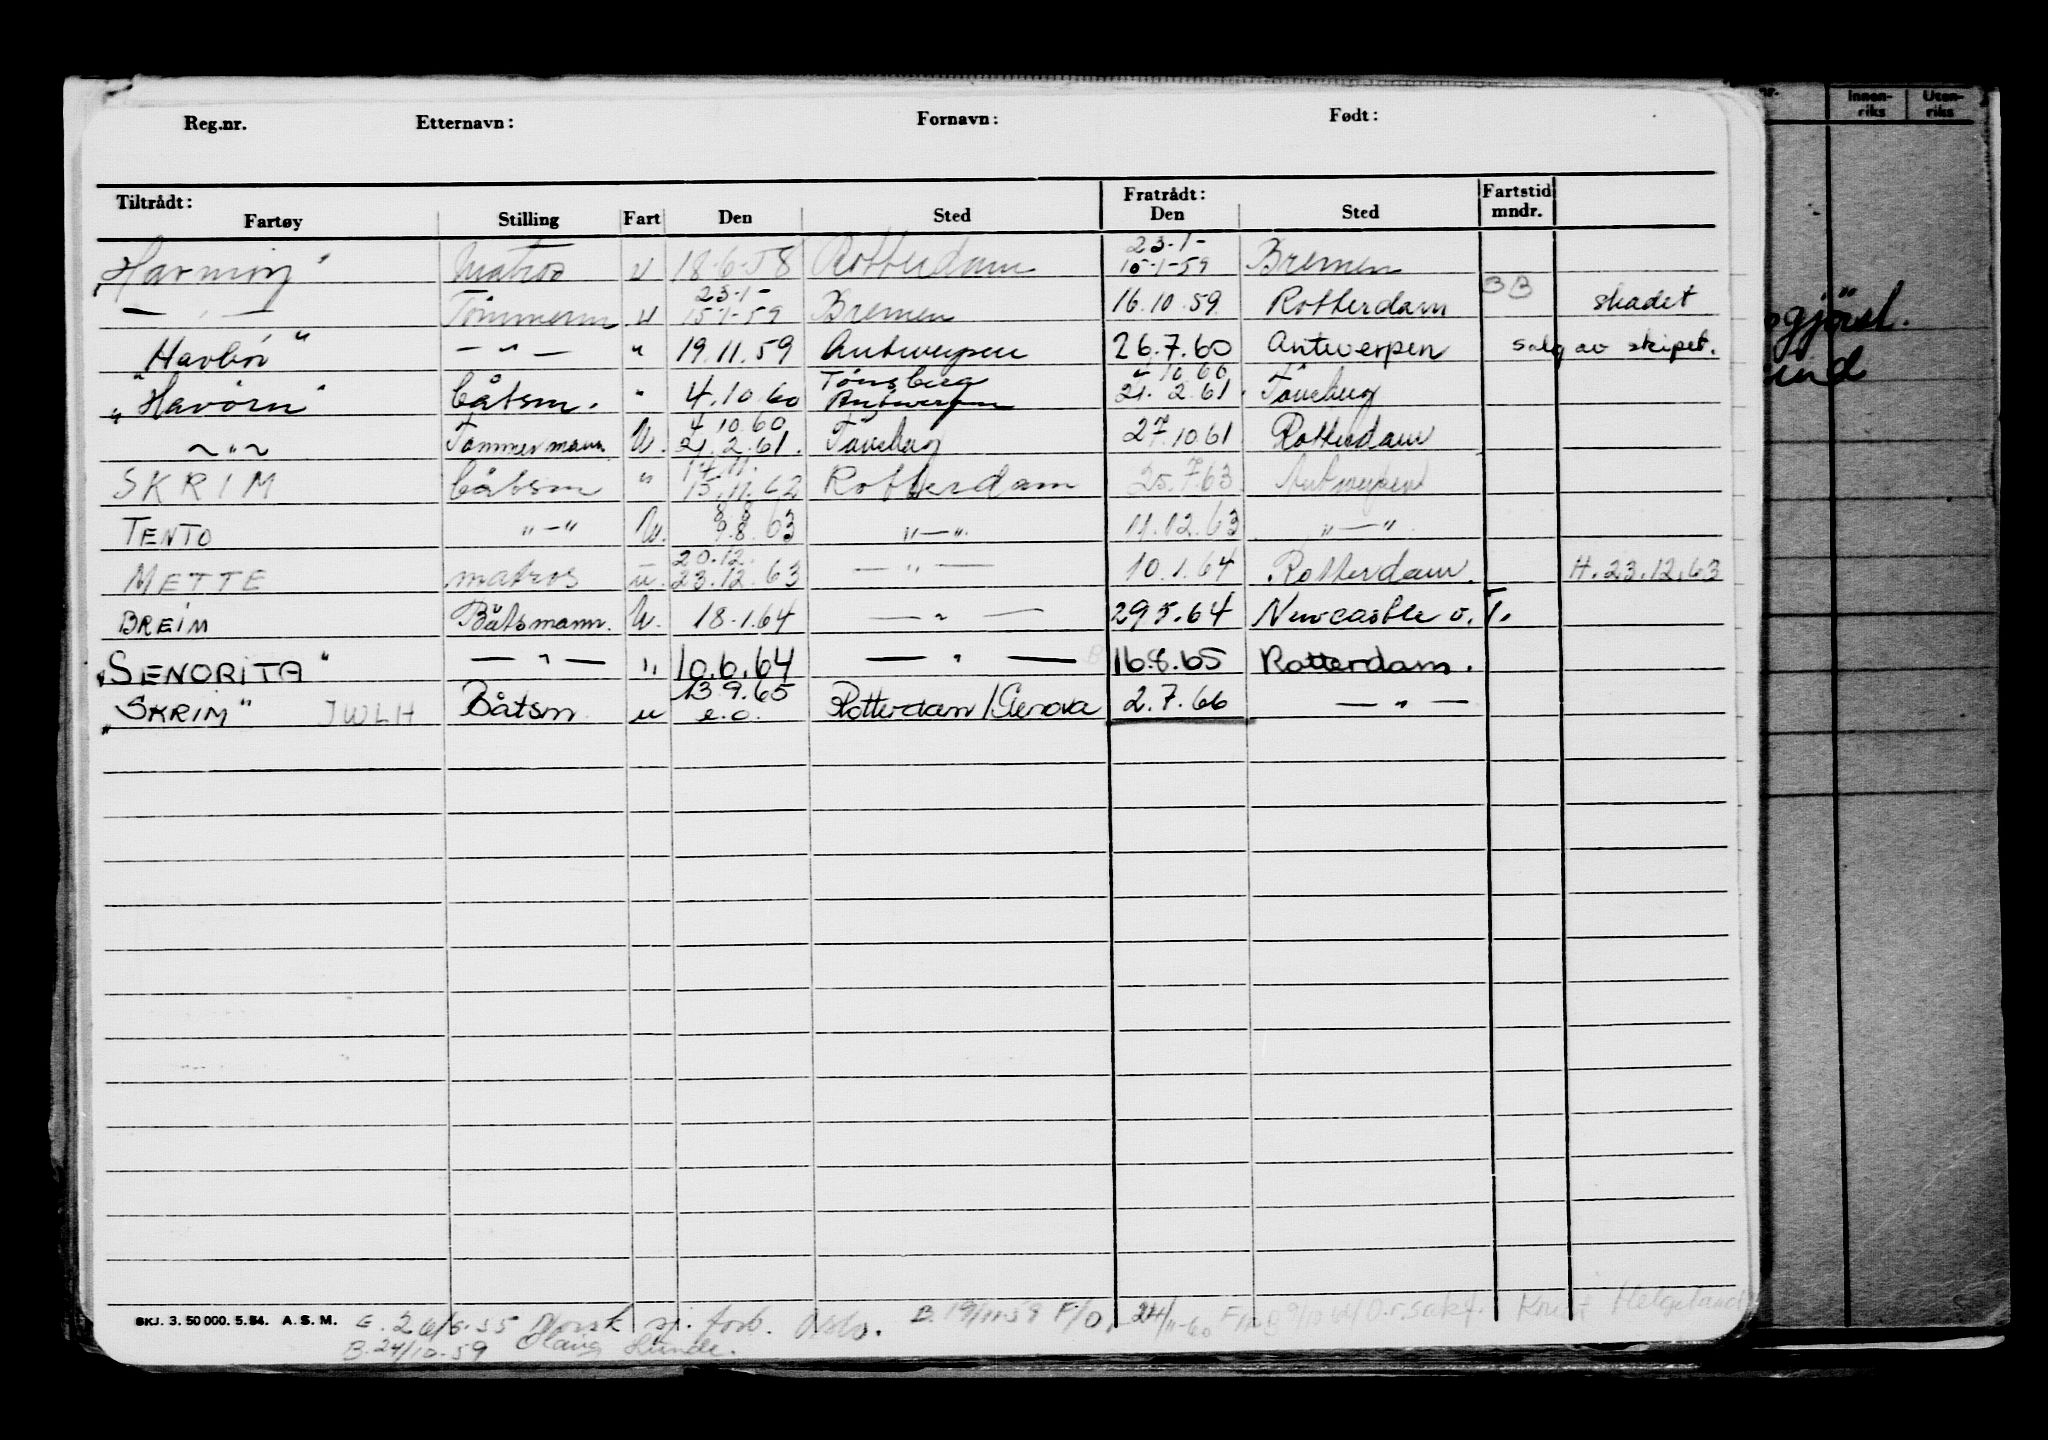 Reg.nr. Etternavn: Fornavn: Født:
Tiltrådt: Fratrådt: Fartstid
Fartøy Stilling Fart Den Sted Den Sted mndr.
Matros u 18-6-58 Rotterdam 23.1- 15-1-59 Bremen
— " — Tømmerm u 23.1- 15-1-59 Bremen 16.10.59 Rotterdam 3B skadet
"Havbør" — " — " 19.11.59 Antwerpen 26.7.60 Antwerpen salg av skipet.
"Havörn" båtsm. " 4.10.60 Tönsberg Antwerpen 4 10 60 21.2.61. Tönsberg
~ " ~ Tømmermann U. 4 10.60 21.2.61. Tönsberg 27.10 61 Rotterdam
SKRIM båtsm " 14.11. 15.11.62 Rotterdam 25.7.63 Antwerpen
TENTO " — " U. 8.8 9.8.63 " — " 11.12.63 " — "
METTE matros u. 20.12. 23.12.63 — " — 10.1.64 Rotterdam. H. 23.12.63
BREIM Båtsmann. U. 18.1.64 — " — 29 5.64 Newcastle o. T.
"SENORITA" — " — " 10.6.64 — " — 16.8.65 Rotterdam.
"SKRIM" JWLH Båtsm u 13 9.65 e.o. Rotterdam/Genova 2.7.66 — " —
SKJ. 3. 50 000. 5. 54. A. S. M. E. 26/5.55 Norsk sj. forb. Oslo. B. 19/11-59 F/O, 24/11-60 Knut Helgeland
B. 24/10-59 Hunde.
nr. Innen-riks Uten-riks